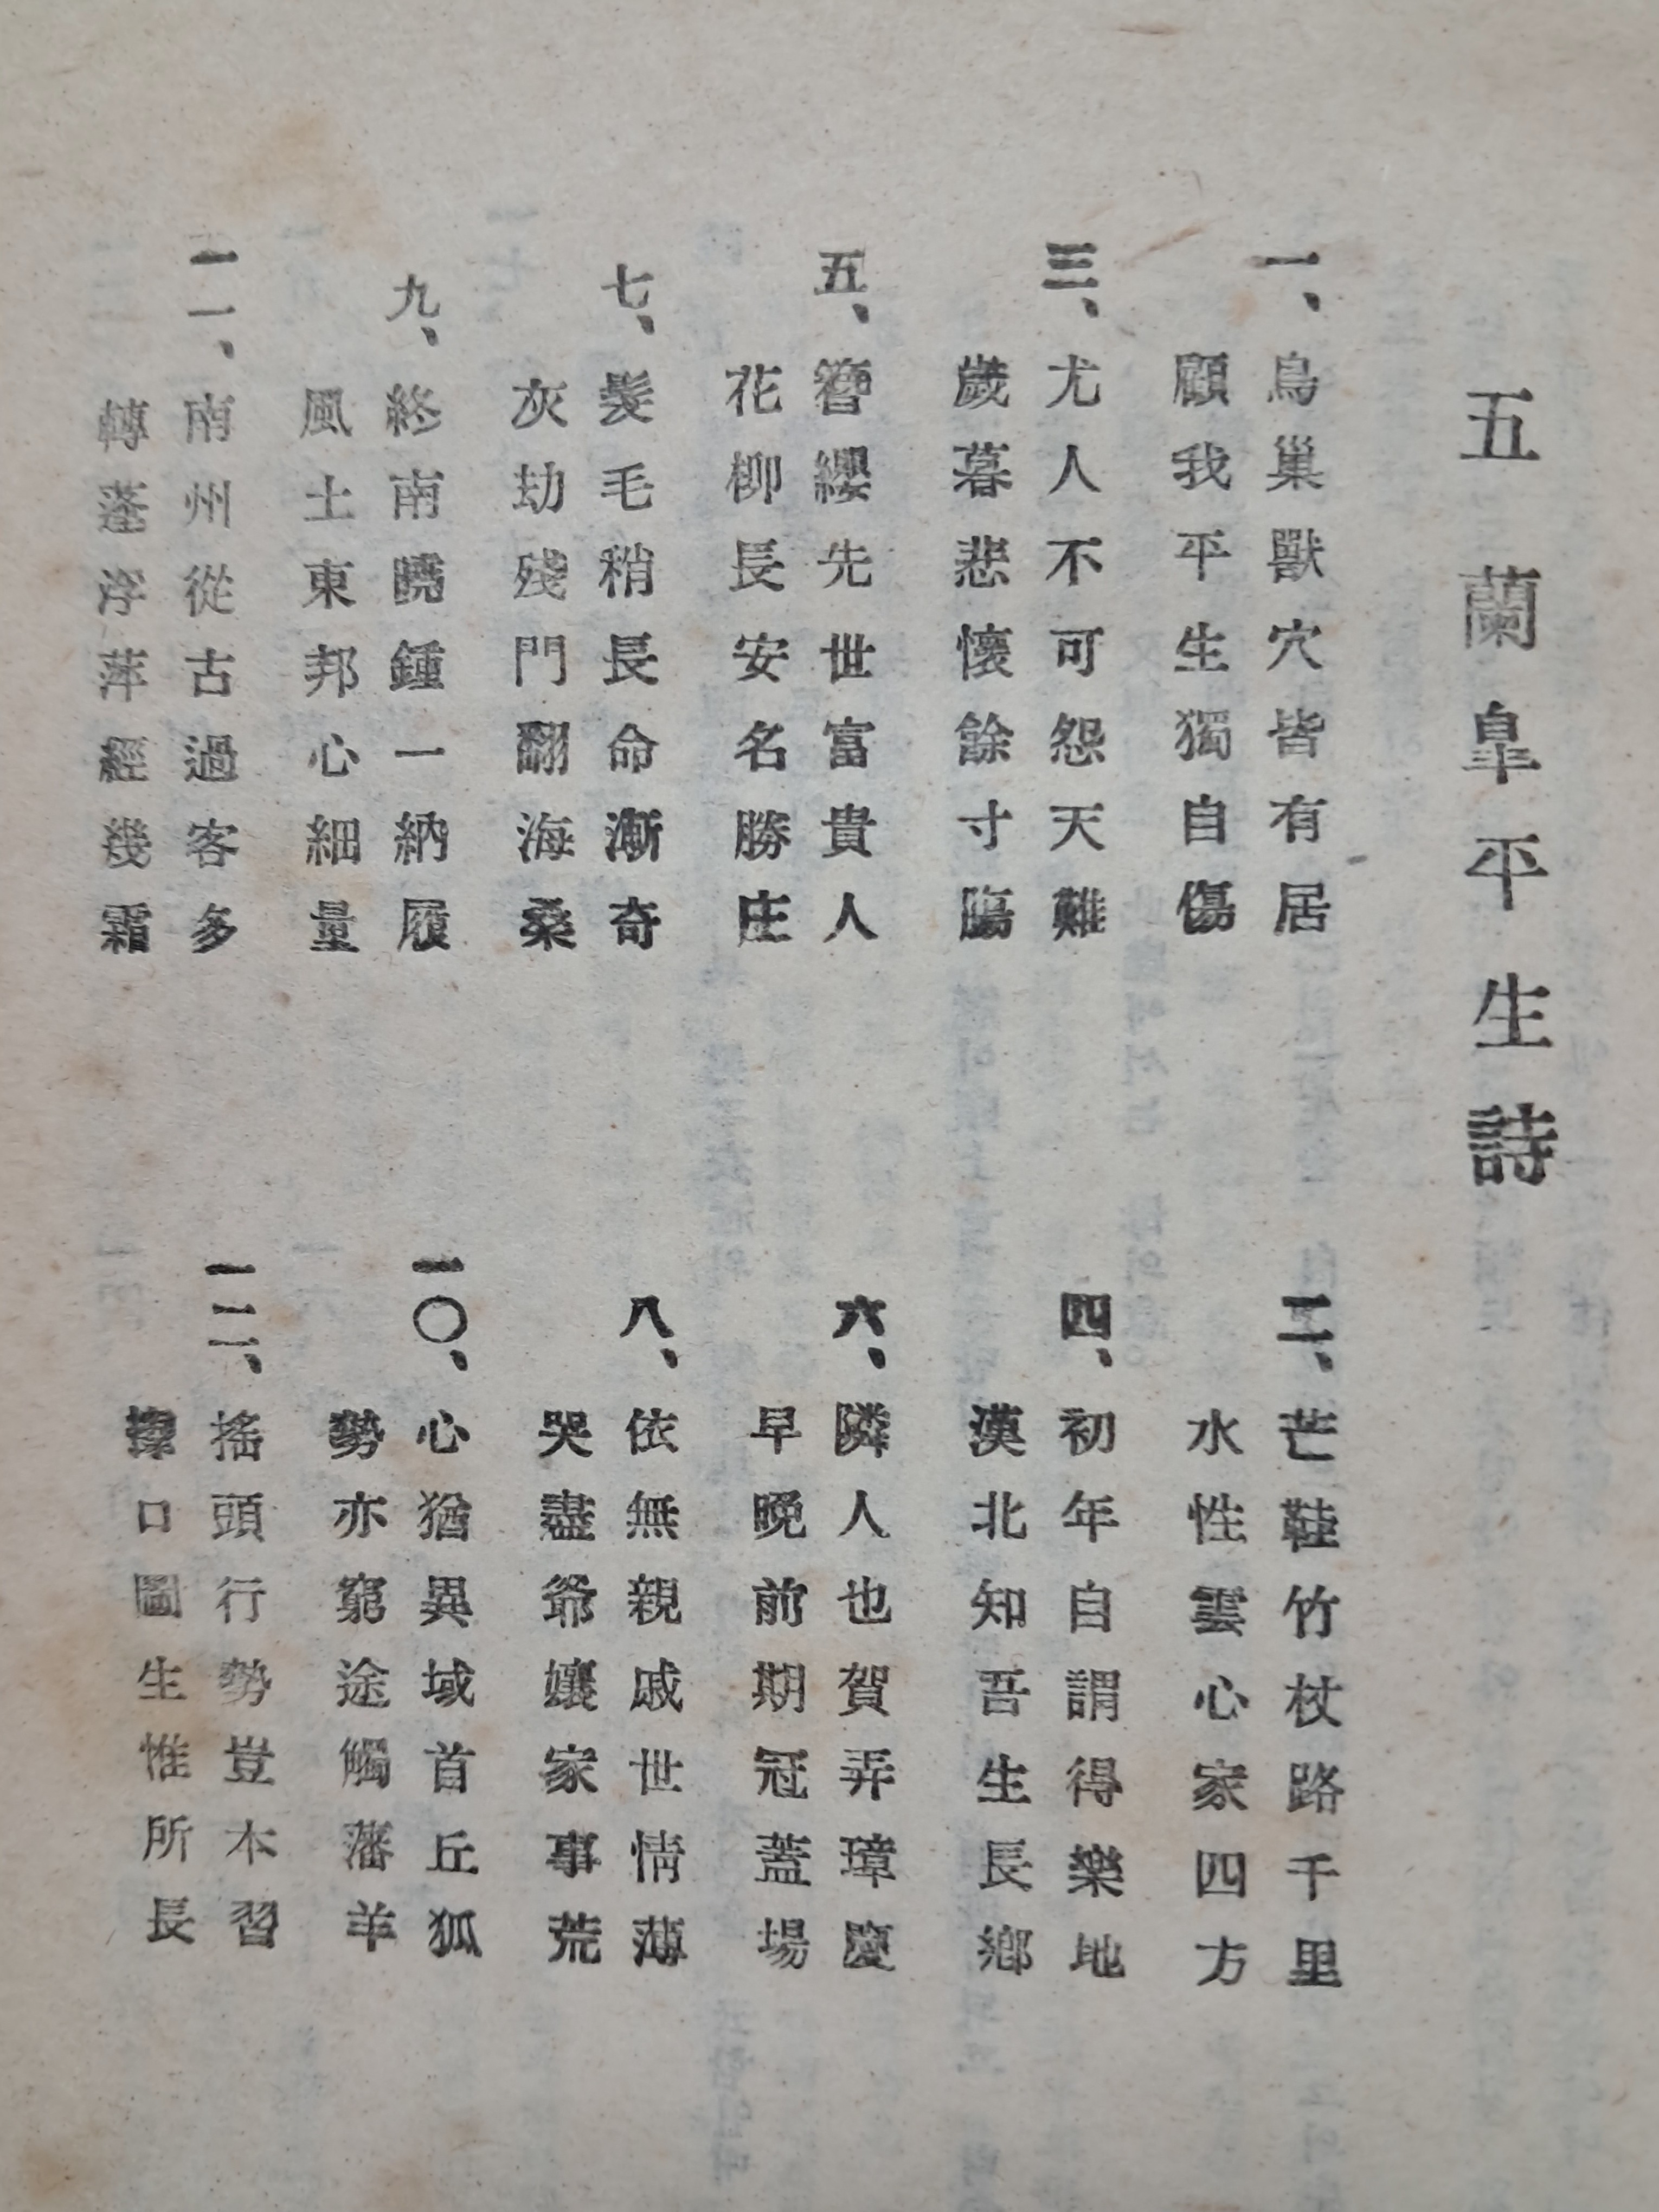 五 蘭皐平生詩
一、鳥巢獸穴皆有居
顧我平生獨自傷
二、芒鞋竹杖路千里
水性雲心家四方
三、尤人不可怨天難
歲暮悲懷餘寸膓
四、初年自謂得樂地
漢北知吾生長鄕
五、簪纓先世富貴人
花柳長安名勝庄
六、隣人也賀弄璋慶
早晩前期冠蓋場
七、髮毛稍長命漸奇
灰劫殘門飜海桑
八、依無親戚世情薄
哭盡爺孃家事荒
九、終南曉鍾一納履
風土東邦心細量
一〇、心猶異域首丘狐
勢亦窮途觸藩羊
一一、南州從古過客多
轉蓬浮萍經幾霜
一二、搖頭行勢豈本習
口圖生惟所長